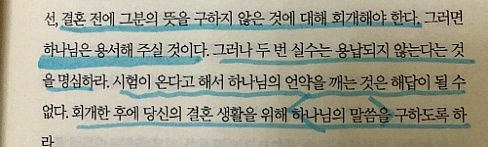 선, 결혼 전에 그분의 뜻을 구하지 않은 것에 대해 회개해야 한다. 그러면
하나님은 용서해 주실 것이다. 그러나 두 번 실수는 용납되지 않는다는 것
을 명심하라. 시험이 온다고 해서 하나님의 언약을 깨는 것은 해답이 될 수
없다. 회개한 후에 당신의 결혼 생활을 위해 하나님의 말씀을 구하도록 하
라